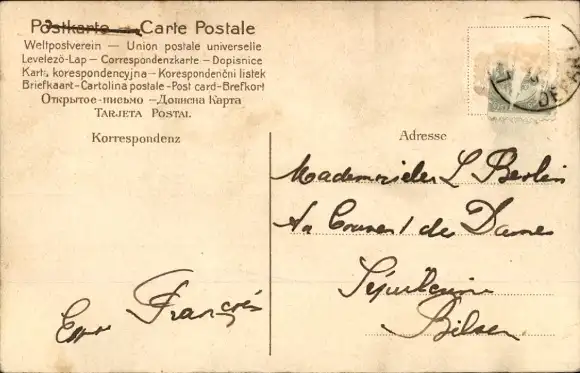 Postkarte — Carte Postale
Weltpostverein — Union postale universelle
Levelező-Lap — Correspondenzkarte — Dopisnice
Karta korespondencyjna — Korespondenční listek
Briefkaart - Cartolina postale - Post card - Brefkort
Открытое-письмо — Дописна Карта
TARJETA POSTAL
Korrespondenz
Adresse
L Berlin
Au Couvent des Dames
Bilsen
François